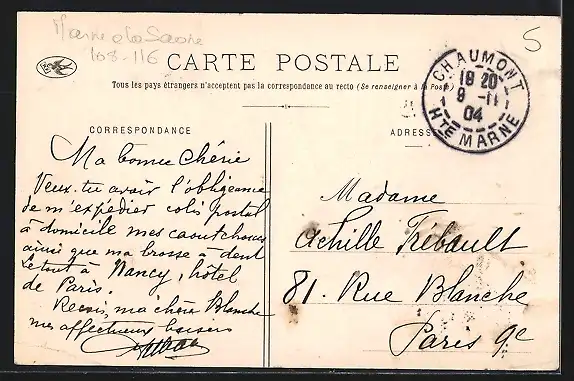 Marne à la Saône
108-116
5
CARTE POSTALE
Tous les pays étrangers n'acceptent pas la correspondance au recto (Se renseigner à la Poste)
CHAUMONT
18 20
9 - 11
04
HTE MARNE
CORRESPONDANCE
ADRESSE
Ma bonne Chérie
Veux-tu avoir l'obligeance
de m'expédier colis postal
à domicile mes caoutchoucs
ainsi que ma brosse à dent
Le tout à Nancy, hôtel
de Paris.
Reçois, ma chère Blanche
mes affectueux baisers
Madame
Achille Trébault
81. Rue Blanche
Paris 9e